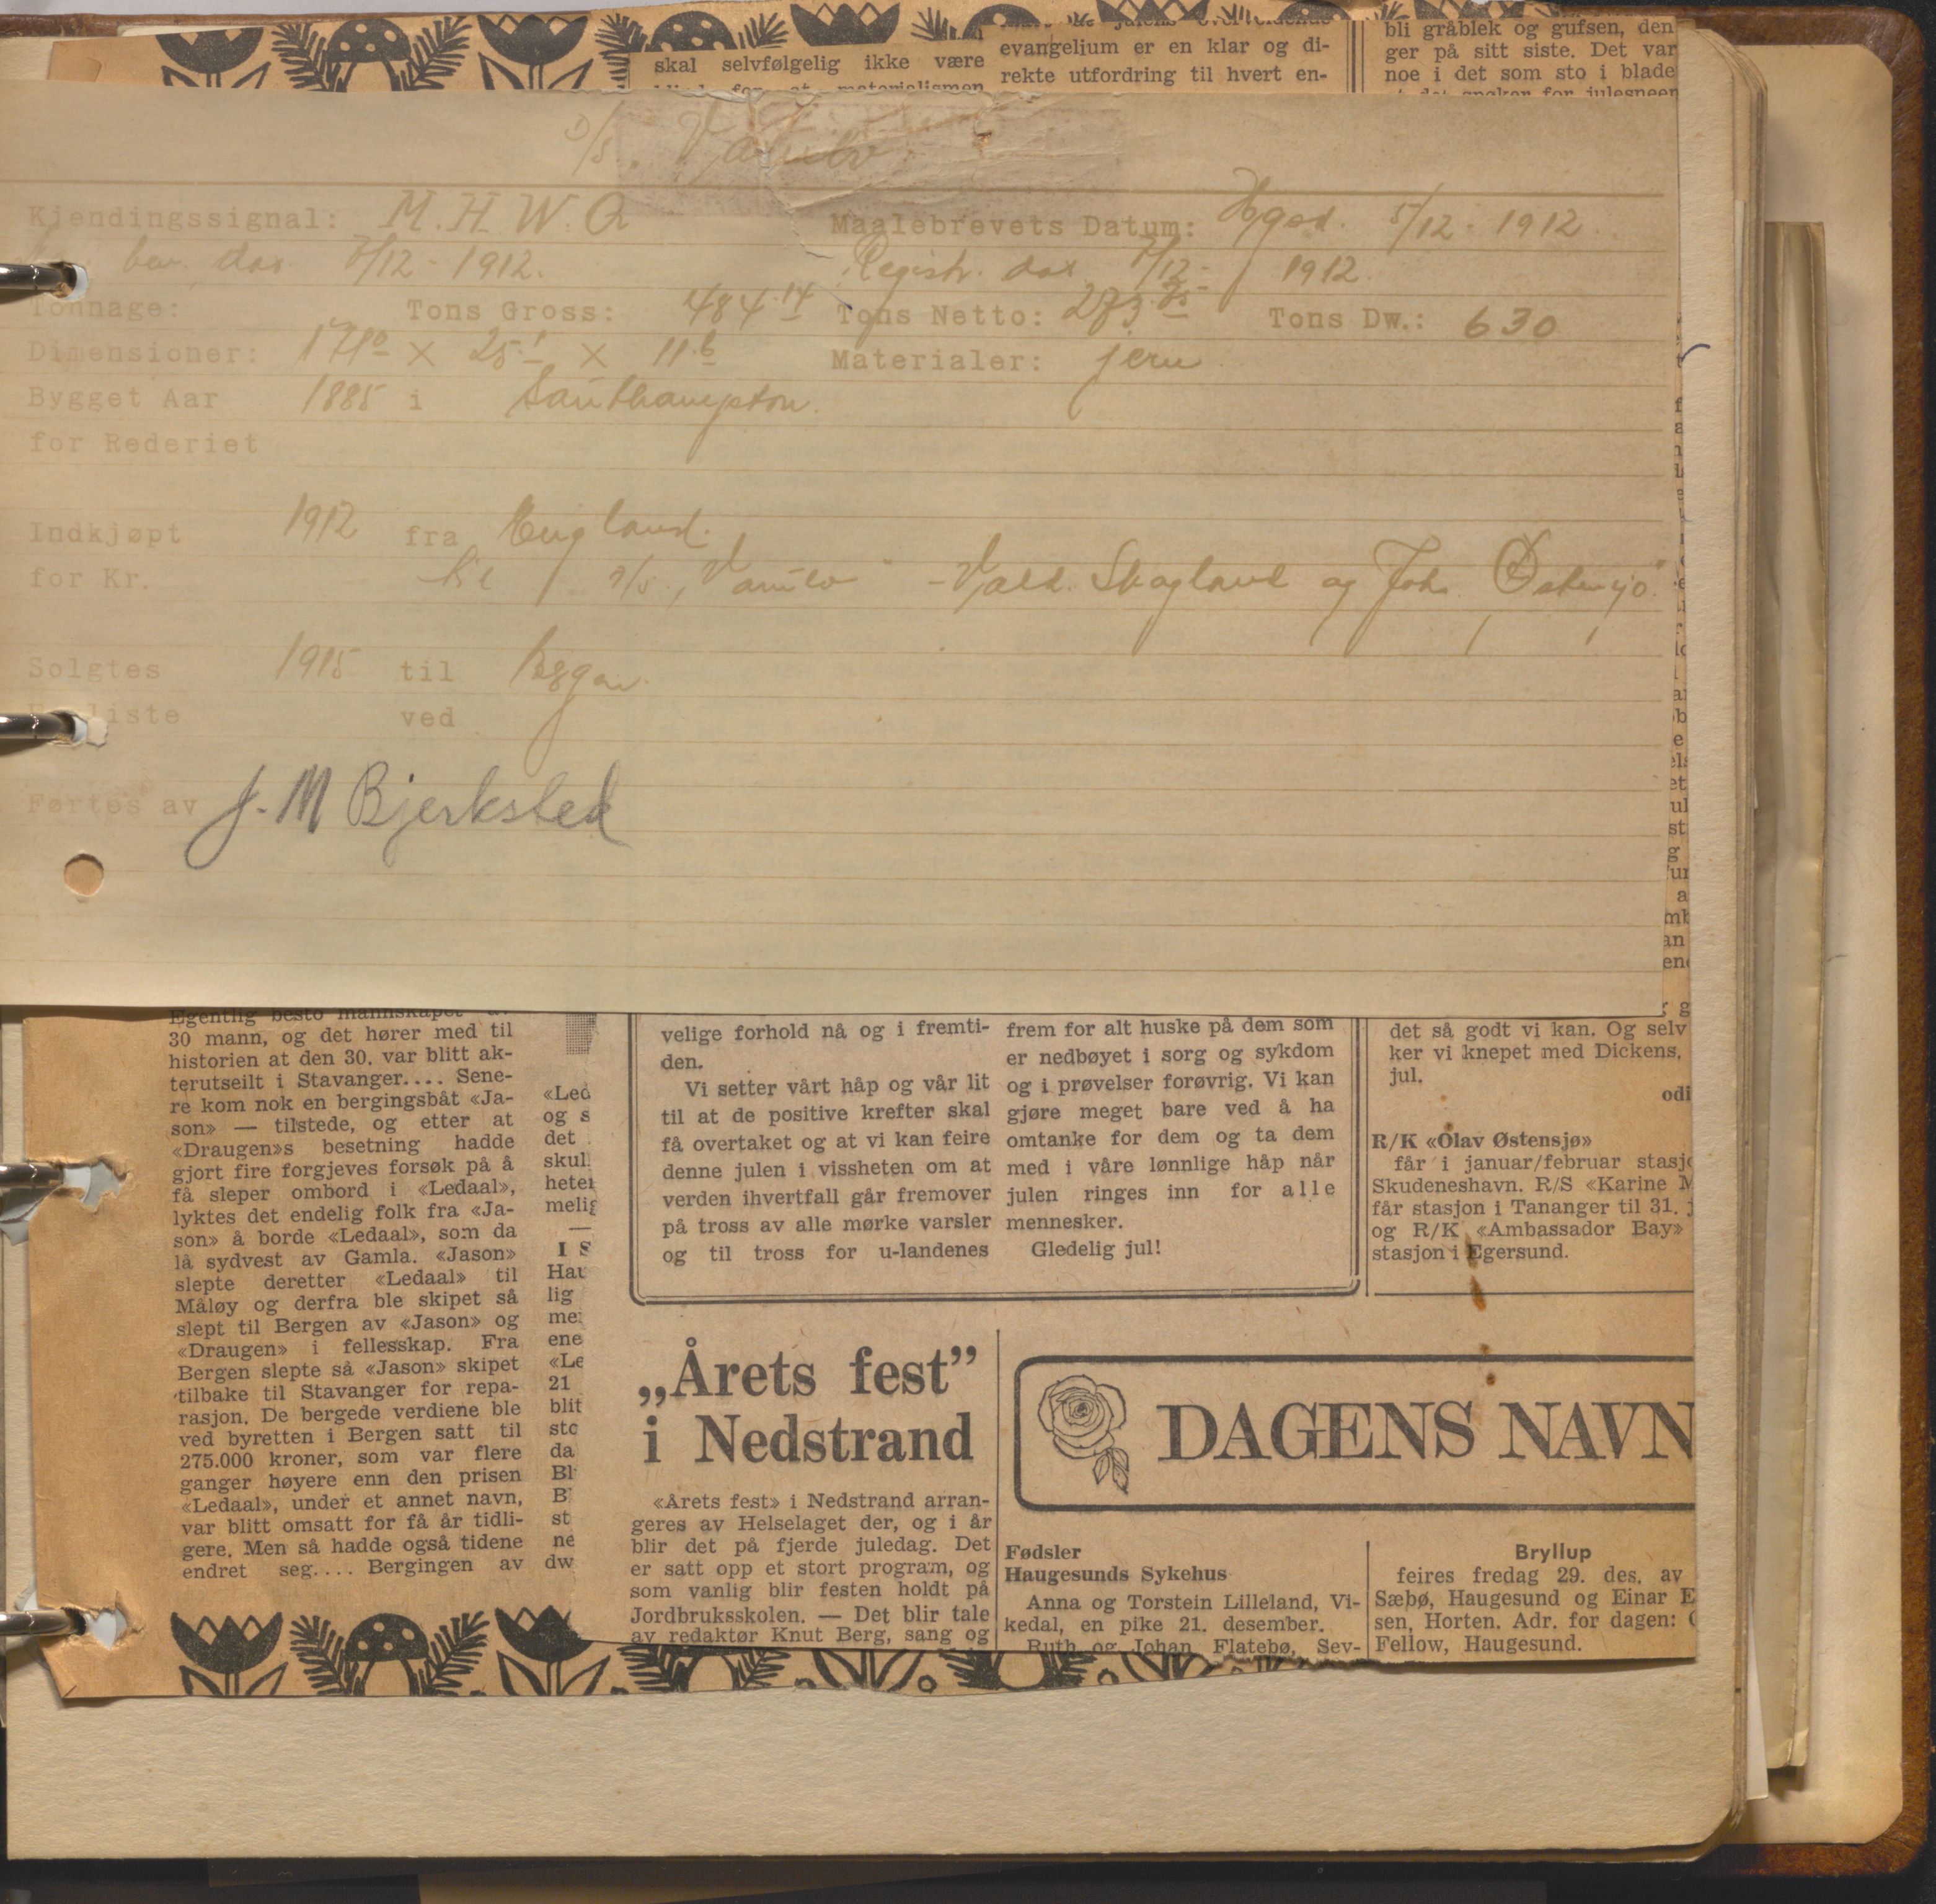 skal selvfølgelig ikke være
evangelium er en klar og di-
rekte utfordring til hvert en-
bli gråblek og gufsen, den
ger på sitt siste. Det var
noe i det som sto i blade
D/S.
Kjendingssignal: M. H. W. Q
Maalebrevets Datum: Hgsd. 5/12 - 1912.
bev. dat. 7/12 - 1912.
Registr. dat. 7/12 - 1912
Tonnage: Tons Gross: 484.14 Tons Netto: 273.75 Tons Dw.: 630
Dimensioner: 171.0 X 25.1 X 11.6 Materialer: jern
Bygget Aar 1885 i Southampton.
for Rederiet
Indkjøpt 1912 fra England.
for Kr. Skogland og Joh. Østensjö
Solgtes 1915 til Bergen
ved
Førtes av J. M Bjerksted
30 mann, og det hører med til
historien at den 30. var blitt ak-
terutseilt i Stavanger.... Sene-
re kom nok en bergingsbåt «Ja-
son» — tilstede, og etter at
«Draugen»s besetning hadde
gjort fire forgjeves forsøk på å
få sleper ombord i «Ledaal»,
lyktes det endelig folk fra «Ja-
son» å borde «Ledaal», som da
lå sydvest av Gamla. «Jason»
slepte deretter «Ledaal» til
Måløy og derfra ble skipet så
slept til Bergen av «Jason» og
«Draugen» i fellesskap. Fra
Bergen slepte så «Jason» skipet
tilbake til Stavanger for repa-
rasjon. De bergede verdiene ble
ved byretten i Bergen satt til
275.000 kroner, som var flere
ganger høyere enn den prisen
«Ledaal», under et annet navn,
var blitt omsatt for få år tidli-
gere. Men så hadde også tidene
endret seg.... Bergingen av
«Led
og s
det
skul
hetei
melig
—
I S
Hau
lig
me
ene
«Le
21
blit
sto
da
Bl
B
st
ne
dw
velige forhold nå og i fremti-
den.
Vi setter vårt håp og vår lit
til at de positive krefter skal
få overtaket og at vi kan feire
denne julen i vissheten om at
verden ihvertfall går fremover
på tross av alle mørke varsler
og til tross for u-landenes
frem for alt huske på dem som
er nedbøyet i sorg og sykdom
og i prøvelser forøvrig. Vi kan
gjøre meget bare ved å ha
omtanke for dem og ta dem
med i våre lønnlige håp når
julen ringes inn for alle
mennesker.
Gledelig jul!
det så godt vi kan. Og selv
ker vi knepet med Dickens,
jul.
odi
R/K «Olav Østensjø»
får i januar/februar stasj
Skudeneshavn. R/S «Karine M
får stasjon i Tananger til 31. j
og R/K «Ambassador Bay»
stasjon i Egersund.
„Årets fest”
i Nedstrand
«Årets fest» i Nedstrand arran-
geres av Helselaget der, og i år
blir det på fjerde juledag. Det
er satt opp et stort program, og
som vanlig blir festen holdt på
Jordbruksskolen. — Det blir tale
av redaktør Knut Berg, sang og
DAGENS NAVN
Fødsler
Haugesunds Sykehus
Anna og Torstein Lilleland, Vi-
kedal, en pike 21. desember.
Ruth og Johan Flatebø, Sev-
Bryllup
feires fredag 29. des. av
Sæbø, Haugesund og Einar E
sen, Horten. Adr. for dagen:
Fellow, Haugesund.